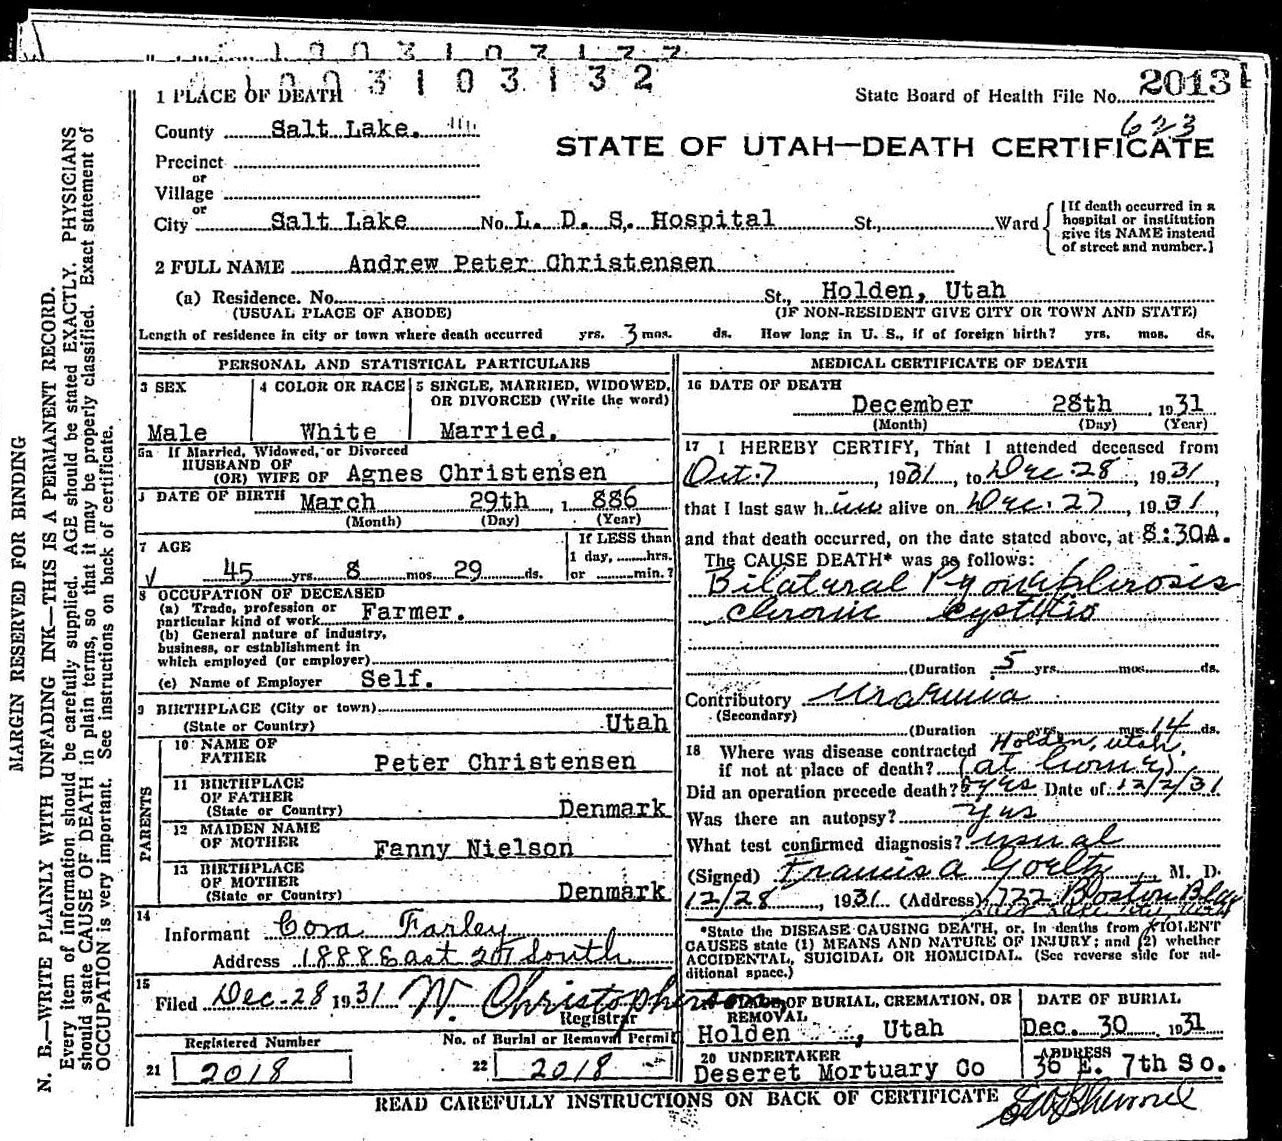 1003103132
2013
1 PLACE OF DEATH
State Board of Health File No.
623
County Salt Lake.
STATE OF UTAH—DEATH CERTIFICATE
Precinct
or
Village
or
City Salt Lake No. L. D. S. Hospital St., Ward
[If death occurred in a hospital or institution give its NAME instead of street and number.]
2 FULL NAME Andrew Peter Christensen
(a) Residence. No. St., Holden, Utah
(USUAL PLACE OF ABODE) (IF NON-RESIDENT GIVE CITY OR TOWN AND STATE)
Length of residence in city or town where death occurred yrs. 3 mos. ds. How long in U. S., if of foreign birth? yrs. mos. ds.
PERSONAL AND STATISTICAL PARTICULARS
3 SEX
Male
4 COLOR OR RACE
White
5 SINGLE, MARRIED, WIDOWED,
OR DIVORCED (Write the word)
Married.
5a If Married, Widowed, or Divorced
HUSBAND OF
(OR) WIFE OF Agnes Christensen
DATE OF BIRTH March 29th, 1886
(Month) (Day) (Year)
7 AGE
45 yrs 8 mos. 29 ds.
If LESS than
1 day, hrs.
or min.?
8 OCCUPATION OF DECEASED
(a) Trade, profession or
particular kind of work Farmer.
(b) General nature of industry,
business, or establishment in
which employed (or employer)
(c) Name of Employer Self.
9 BIRTHPLACE (City or town)
(State or Country) Utah
PARENTS
10 NAME OF
FATHER Peter Christensen
11 BIRTHPLACE
OF FATHER
(State or Country) Denmark
12 MAIDEN NAME
OF MOTHER Fanny Nielson
13 BIRTHPLACE
OF MOTHER
(State or Country) Denmark
14
Informant Cora Farley
Address 1888 East 20 South
15
Filed Dec-28 1931 W. Christopherson
Registrar
Registered Number
21 2018
No. of Burial or Removal Permit
22 2018
MEDICAL CERTIFICATE OF DEATH
16 DATE OF DEATH
December 28th, 1931
(Month) (Day) (Year)
17 I HEREBY CERTIFY, That I attended deceased from
Oct. 7, 1931, to Dec. 28, 1931,
that I last saw him alive on Dec. 27, 1931,
and that death occurred, on the date stated above, at 8:30A.
The CAUSE DEATH* was as follows:
Bilateral Pyonephrosis
chronic cystitis
(Duration 5 yrs. mos. ds.
Contributory Uraemia
(Secondary)
(Duration yrs. mos. 14 ds.
18 Where was disease contracted Holden, Utah,
if not at place of death? (at home)
Did an operation precede death? yes Date of 12/2/31
Was there an autopsy? yes
What test confirmed diagnosis? usual
(Signed) Francis A Goeltz, M. D.
12/28, 1931 (Address) 722 Boston Bldg
Salt Lake City, Utah
*State the DISEASE CAUSING DEATH, or, in deaths from VIOLENT
CAUSES state (1) MEANS AND NATURE OF INJURY; and (2) whether
ACCIDENTAL, SUICIDAL OR HOMICIDAL. (See reverse side for ad-
ditional space.)
PLACE OF BURIAL, CREMATION, OR
REMOVAL
Holden, Utah
DATE OF BURIAL
Dec. 30 1931
20 UNDERTAKER
Deseret Mortuary Co
ADDRESS
36 E. 7th So.
READ CAREFULLY INSTRUCTIONS ON BACK OF CERTIFICATE
MARGIN RESERVED FOR BINDING
N. B.—WRITE PLAINLY WITH UNFADING INK—THIS IS A PERMANENT RECORD.
Every item of information should be carefully supplied. AGE should be stated EXACTLY. PHYSICIANS
should state CAUSE OF DEATH in plain terms, so that it may be properly classified. Exact statement of
OCCUPATION is very important. See instructions on back of certificate.